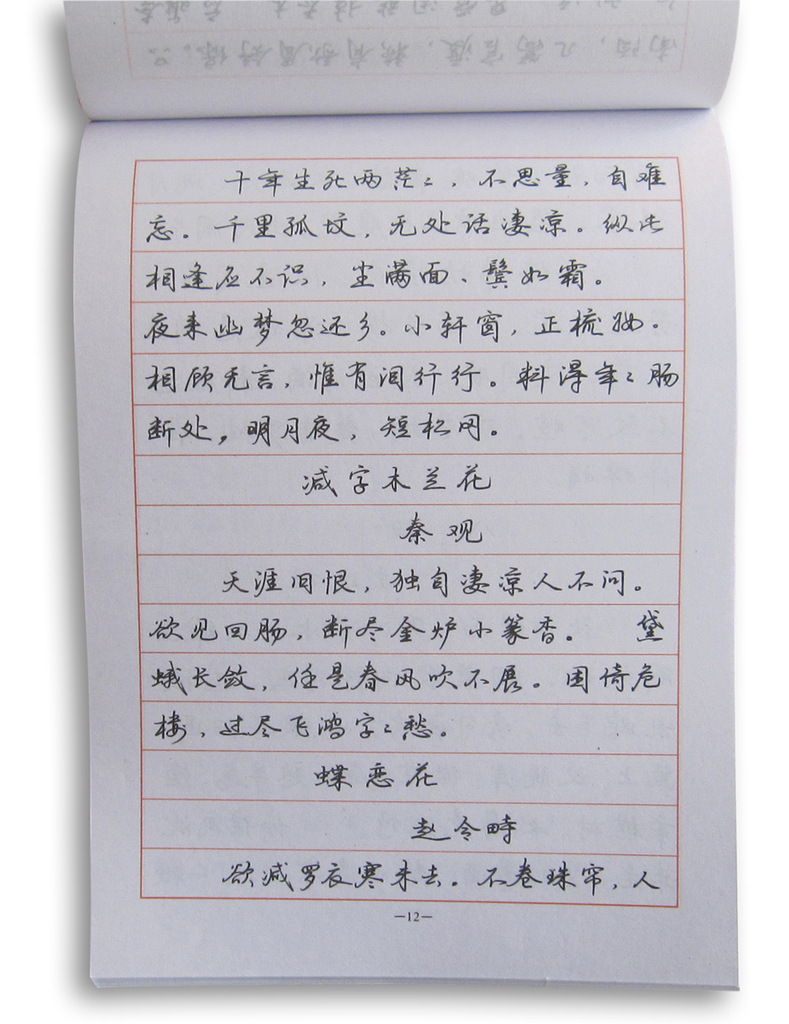 十年生死两茫々，不思量，自难
忘。千里孤坟，无处话凄凉。纵此
相逢应不识，尘满面、鬓如霜。
夜来幽梦忽还乡。小轩窗，正梳妆。
相顾无言，惟有泪行行。料得年々肠
断处，明月夜，短松冈。
减字木兰花
秦观
天涯旧恨，独自凄凉人不问。
欲见回肠，断尽金炉小篆香。 黛
蛾长敛，任是春风吹不展。困倚危
楼，过尽飞鸿字々愁。
蝶恋花
赵令畤
欲减罗衣寒未去。不卷珠帘，人
—12—